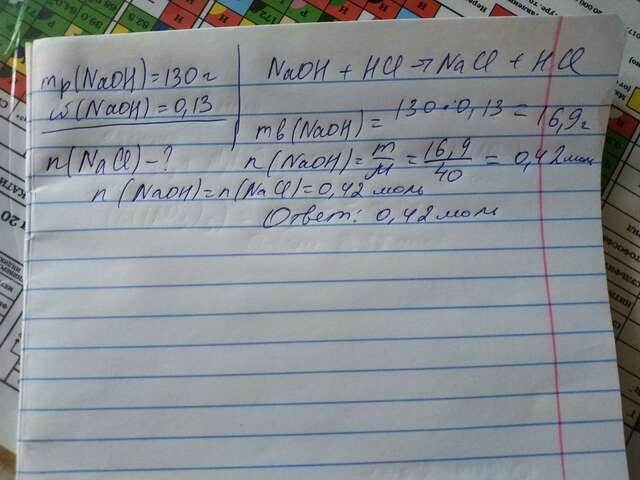 mр(NaOH)=130г
ω(NaOH)=0,13
n(NaCl)-?
NaOH + HCl → NaCl + HCl
mв(NaOH)= 130·0,13 = 16,9г
n(NaOH)= m/M = 16,9/40 = 0,42 моль
n (NaOH)=n(NaCl)=0,42 моль
Ответ: 0,42 моль